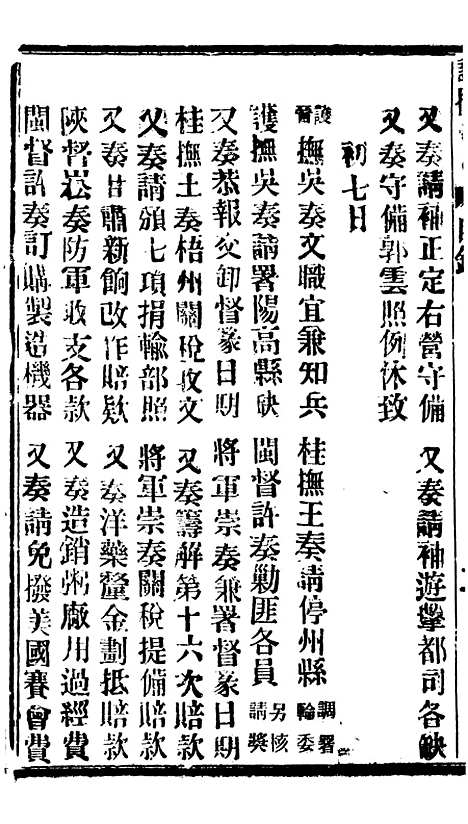 目錄
又奏請補正定右營守備　又奏請補遊擊都司各缺
又奏守備郭雲照例休致
初七日
護晉撫吳奏文職宜兼知兵　桂撫王奏請停州縣調署輪委
護撫吳奏請署陽高縣缺　閩督許奏勦匪各員另核請獎
又奏恭報交卸督篆日期　將軍崇奏兼署督篆日期
桂撫王奏梧州關稅收支　又奏籌解第十六次賠款
又奏請頒七項捐輸部照　將軍崇奏關稅提備賠款
又奏甘肅新餉改作賠款　又奏洋藥釐金劃抵賠款
陝督崧奏防軍收支各款　又奏造銷粥廠用過經費
閩督許奏訂購製造機器　又奏請免撥美國賽會費